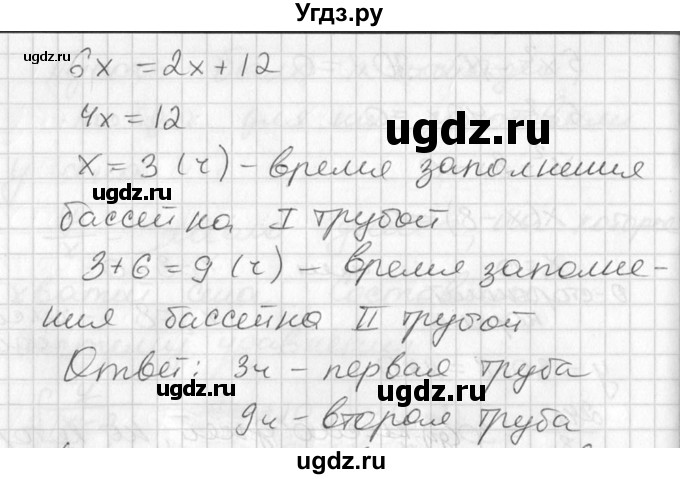 Угдз.ру
6x = 2x + 12
4x = 12
x = 3 (ч) – время заполнения
бассейна I трубой
3 + 6 = 9 (ч) – время заполне-
ния бассейна II трубой
Ответ: 3ч – первая труба
9ч – вторая труба
ugdz.ru
ugdz.ru
ugdz.ru
ugdz.ru
ugdz.ru
ugdz.ru
ugdz.ru
ugdz.ru